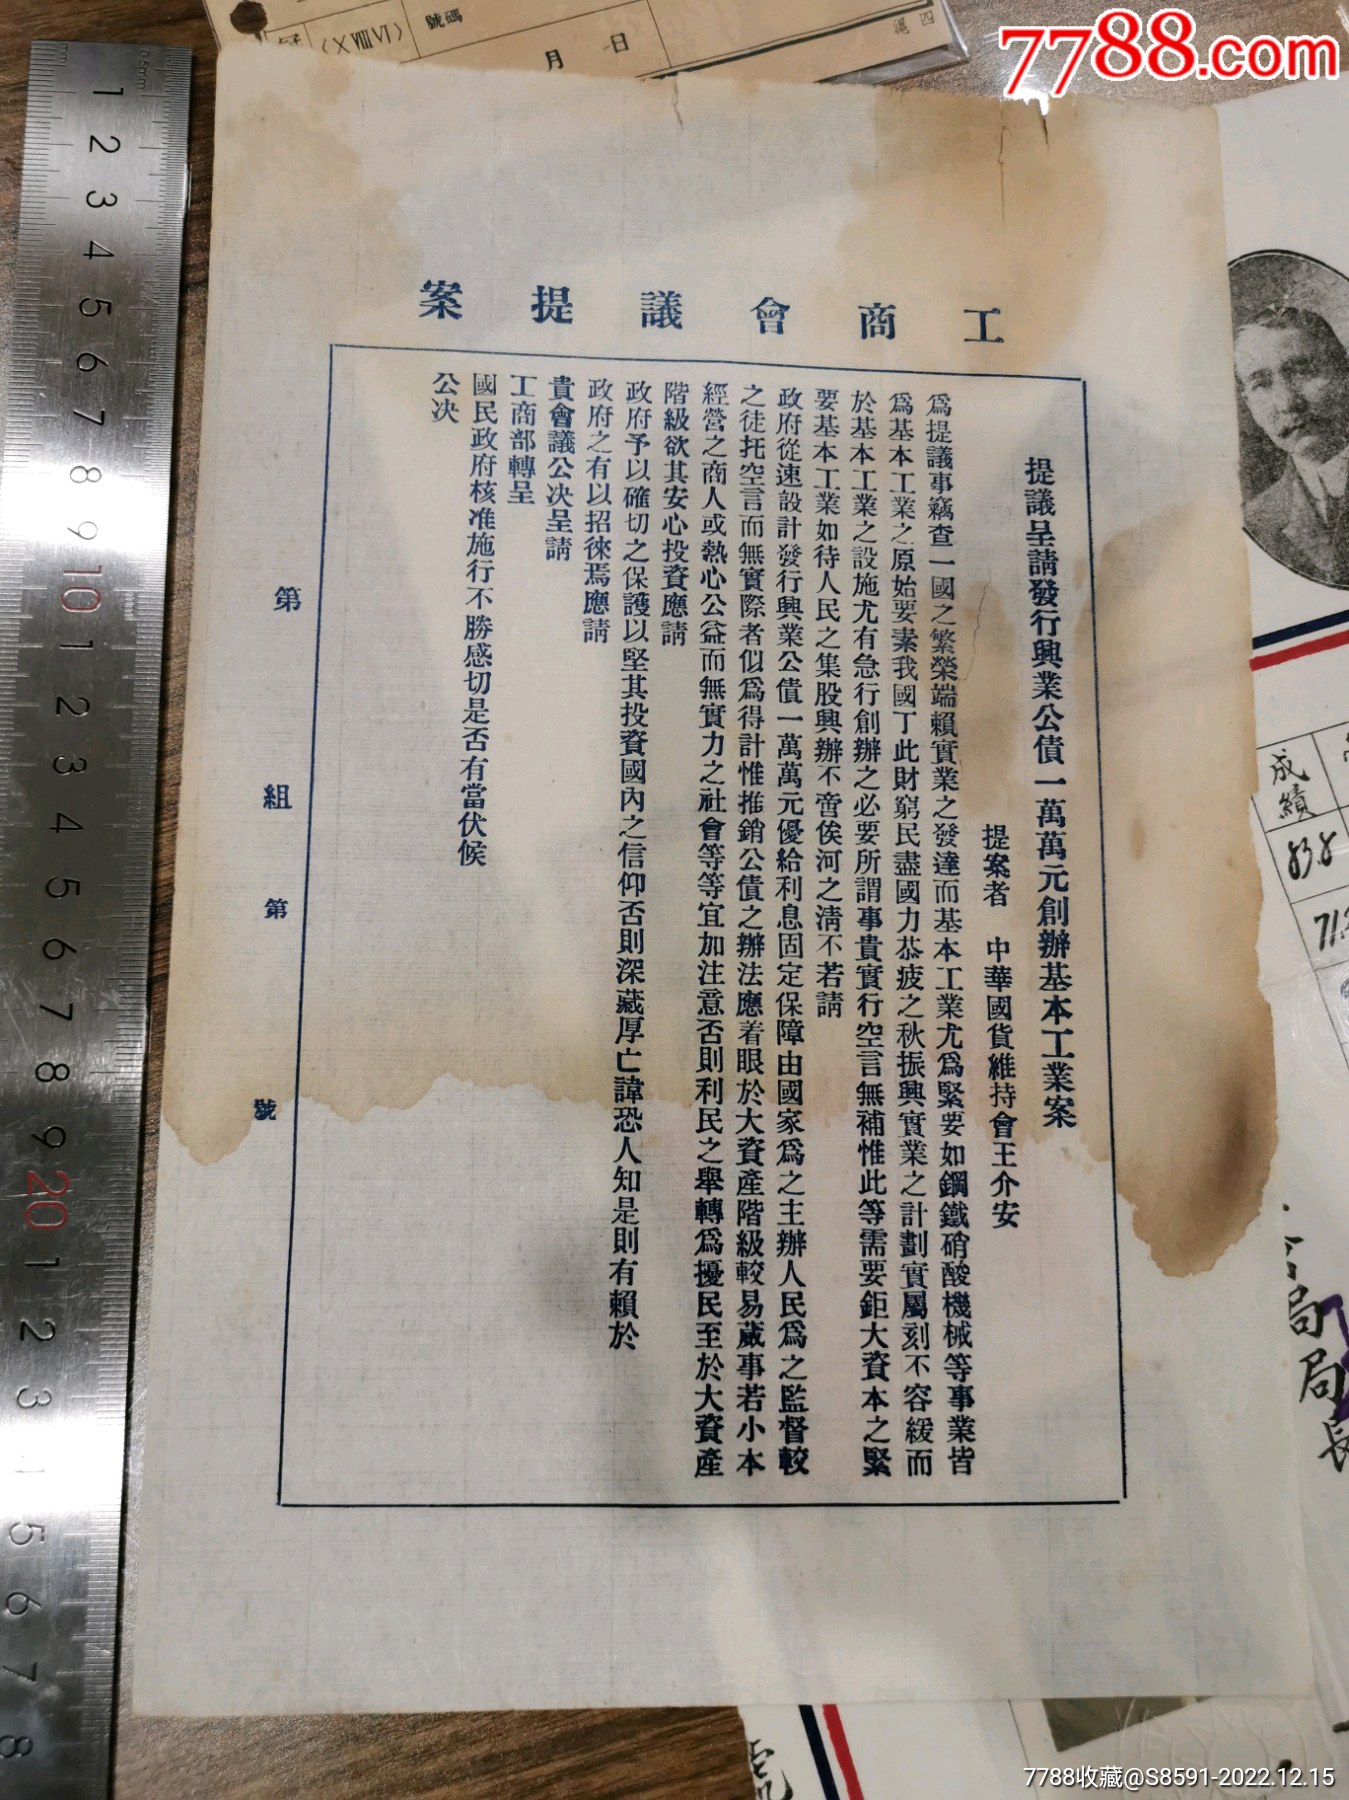 7788.com
號碼
(XⅧⅥ)
月 日
工商會議提案
提議呈請發行興業公債一萬萬元創辦基本工業案
提案者 中華國貨維持會王介安
爲提議事竊查一國之繁榮端賴實業之發達而基本工業尤爲緊要如鋼鐵硝酸機械等事業皆
爲基本工業之原始要素我國丁此財窮民盡國力恭疲之秋振興實業之計劃實屬刻不容緩而
於基本工業之設施尤有急行創辦之必要所謂事貴實行空言無補惟此等需要鉅大資本之緊
要基本工業如待人民之集股興辦不啻俟河之淸不若請
政府從速設計發行興業公債一萬萬元優給利息固定保障由國家爲之主辦人民爲之監督較
之徒托空言而無實際者似爲得計惟推銷公債之辦法應着眼於大資產階級較易蕆事若小本
經營之商人或熱心公益而無實力之社會等等宜加注意否則利民之舉轉爲擾民至於大資產
階級欲其安心投資應請
政府予以確切之保護以堅其投資國內之信仰否則深藏厚亡諱恐人知是則有賴於
政府之有以招徠焉應請
貴會議公決呈請
工商部轉呈
國民政府核准施行不勝感切是否有當伏候
公決
第 組 第 號
成績
83.8
局
局長
7788收藏@S8591-2022.12.15